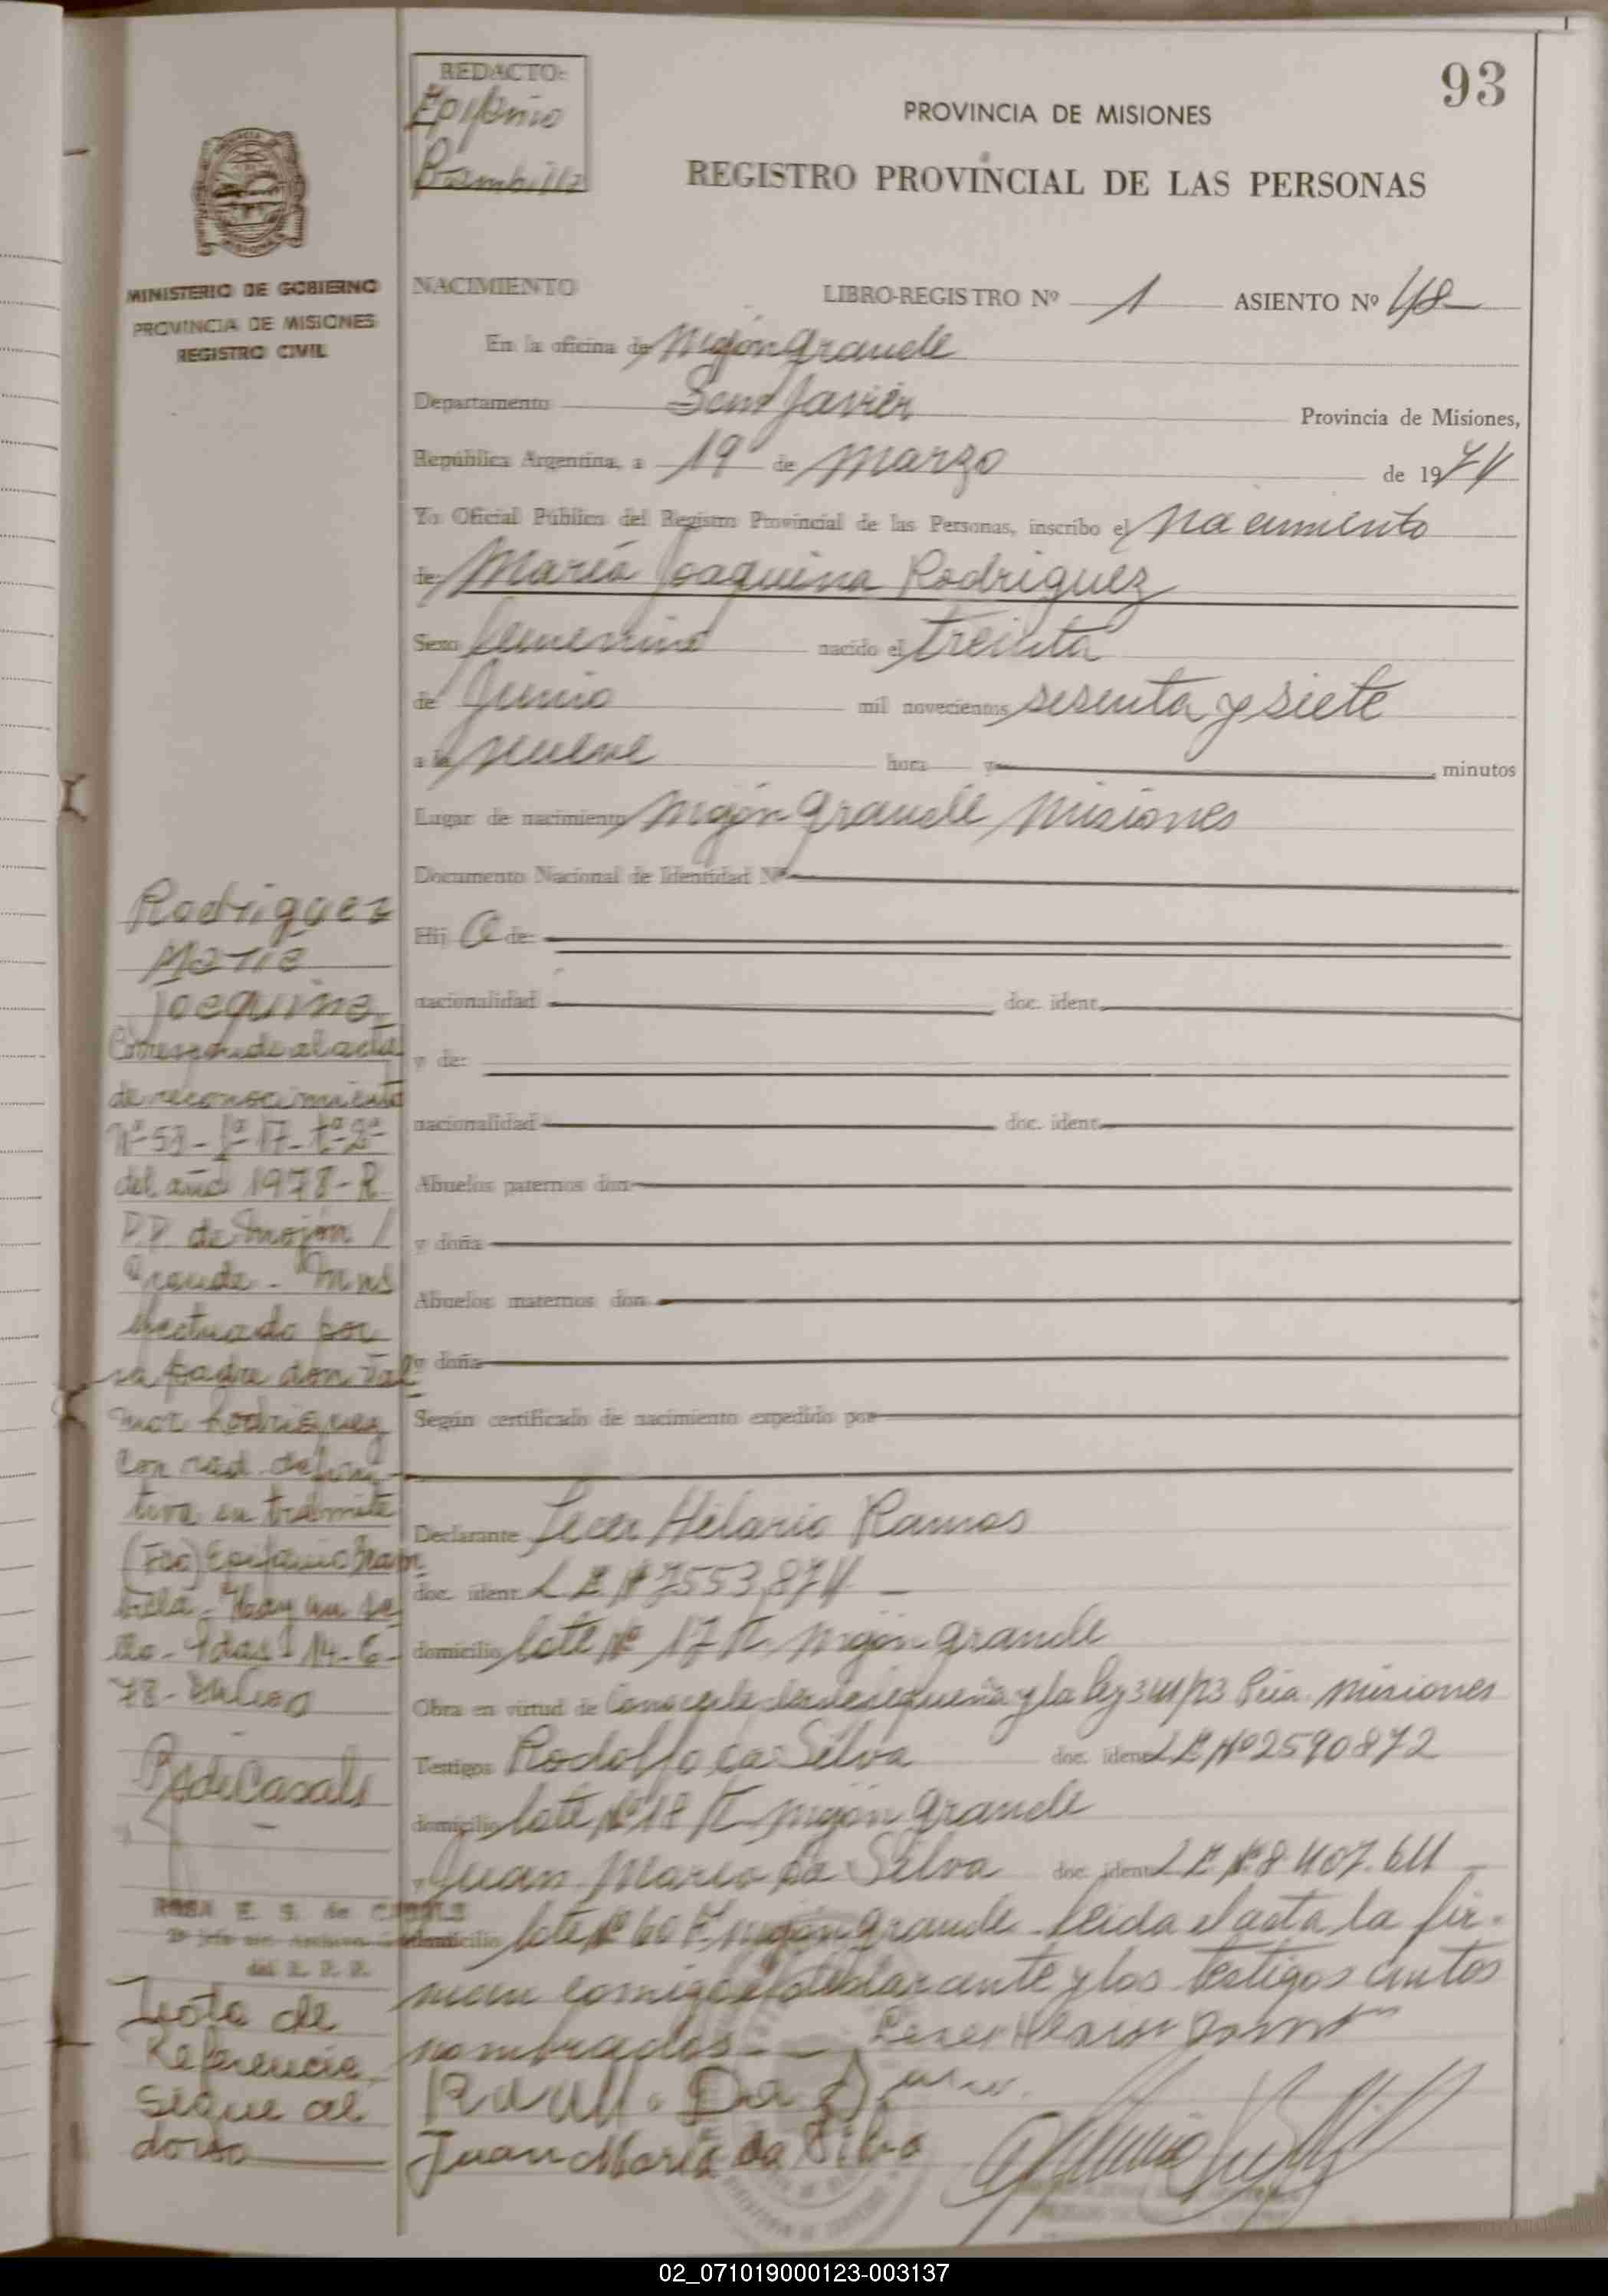 93
REDACTO:
Epifanio
Brambilla
PROVINCIA DE MISIONES
REGISTRO PROVINCIAL DE LAS PERSONAS
MINISTERIO DE GOBIERNO
PROVINCIA DE MISIONES
REGISTRO CIVIL
NACIMIENTO LIBRO-REGISTRO Nº 1 ASIENTO Nº 48
En la oficina de Mojón Grande
Departamento San Javier Provincia de Misiones,
República Argentina, a 19 de Marzo de 1974
Yo Oficial Público del Registro Provincial de las Personas, inscribo el Nacimiento
de: María Joaquina Rodriguez
Sexo femenino nacido el treinta
de Junio mil novecientos sesenta y siete
a la nueve hora y minutos
Lugar de nacimiento Mojón Grande Misiones
Documento Nacional de Identidad Nº
Hij a de:
nacionalidad doc. ident.
y de:
nacionalidad doc. ident.
Abuelos paternos don
y doña
Abuelos maternos don
y doña
Según certificado de nacimiento expedido por
Declarante Hilario Ramos
doc. ident. L E Nº 7553,874
domicilio lote Nº 17 Mojón Grande
Obra en virtud de y la ley Misiones
Testigos Rodolfo da Silva doc. ident. L E Nº 2590872
domicilio lote Nº 18 Mojón Grande
y Juan María da Silva doc. ident. L E Nº 8407.611
domicilio lote Nº 60 Mojón Grande leida el acta la fir-
man conmigo el declarante y los testigos antes
nombrados
Juan María da Silva
Rodriguez
María
Joaquina
Corresponde al acta
de reconocimiento
Nº 53 - fº 17 - tº 2º
del año 1978 - R.
P.P. de Mojón
Grande - Mns
efectuado por
su padre don Tal
mor Rodriguez
con rad. defini-
tiva en trámite
(Fdo) Epifanio Bram
billa - Hay un se
llo - Pdas - 14-6-
78
R de Casals
ROSA E. S. de CASALS
del R. P. P.
Nota de
Referencia
sigue al
dorso
02_071019000123-003137